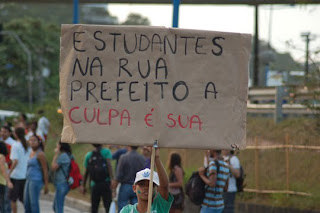 ESTUDANTES
NA RUA
PREFEITO A
CULPA É SUA